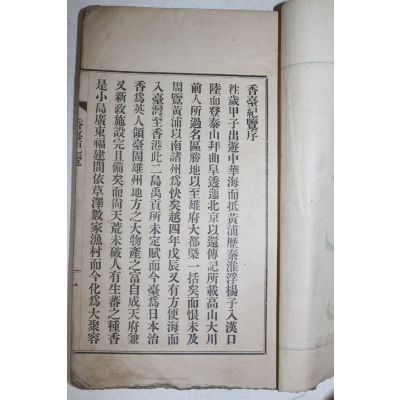 香臺紀覽序
徃歲甲子出遊中華海而抵黃浦歷秦淮浮揚子入漢口
陸而登泰山拜曲阜逩迤北京以還傳記所載高山大川
前人所過名區勝地以至雄府大都槩一括矣而恨未及
周覽黃浦以南諸州爲快矣越四年戊辰又有方便海而
入臺灣至香港此二島禹貢所未定賦而今臺爲日本治
香爲英人領臺固雄州地方之大物產之富自成天府兼
又新政施設完且備矣而尙天荒未破人有生蕃之種香
是小島廣東福建間依草澤數家漁村而今化爲大聚容